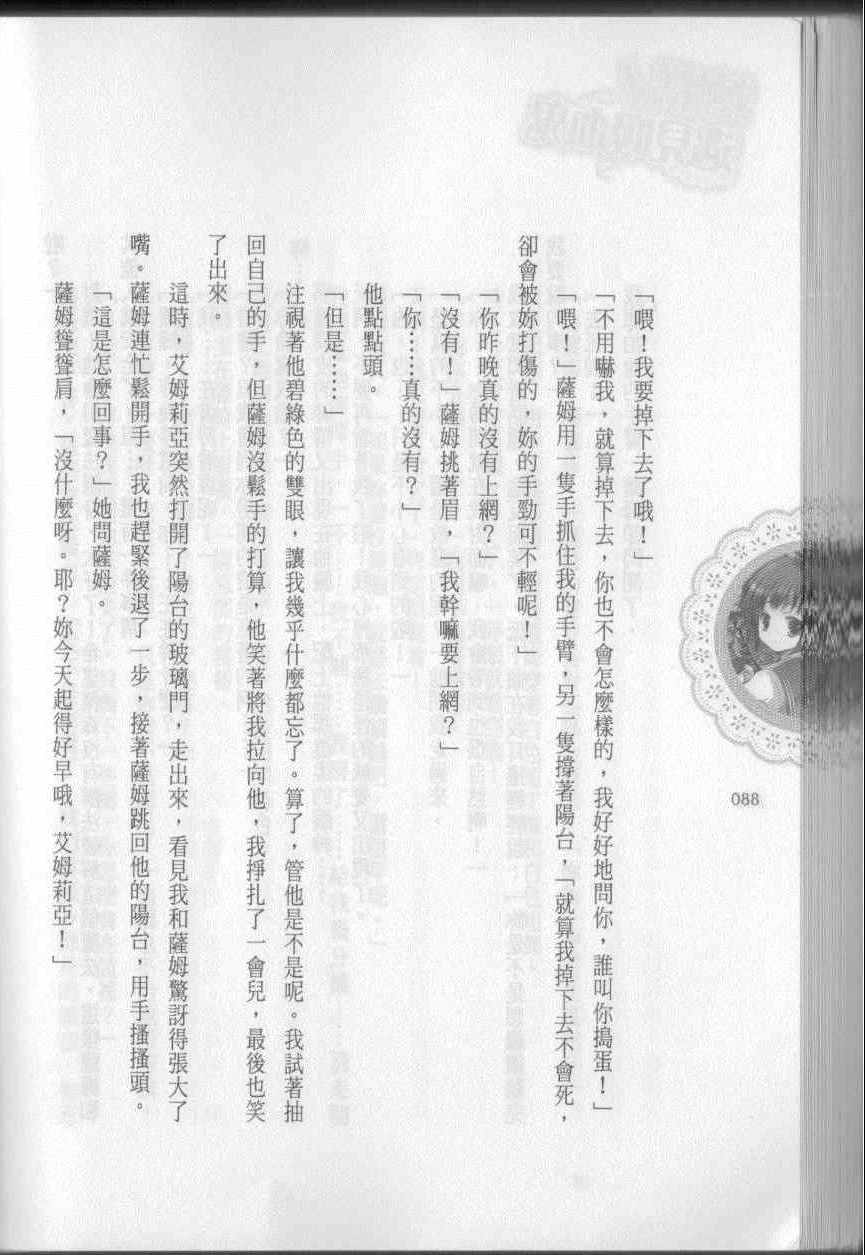 「喂！我要掉下去了哦！」
「不用嚇我，就算掉下去，你也不會怎麼樣的，我好好地問你，誰叫你搗蛋！」
「喂！」薩姆用一隻手抓住我的手臂，另一隻撐著陽台，「就算我掉下去不會死，
卻會被妳打傷的，妳的手勁可不輕呢！」
「你昨晚真的沒有上網？」
「沒有！」薩姆挑著眉，「我幹嘛要上網？」
「你……真的沒有？」
他點點頭。
「但是……」
注視著他碧綠色的雙眼，讓我幾乎什麼都忘了。算了，管他是不是呢。我試著抽
回自己的手，但薩姆沒鬆手的打算，他笑著將我拉向他，我掙扎了一會兒，最後也笑
了出來。
這時，艾姆莉亞突然打開了陽台的玻璃門，走出來，看見我和薩姆驚訝得張大了
嘴。薩姆連忙鬆開手，我也趕緊後退了一步，接著薩姆跳回他的陽台，用手搔搔頭。
「這是怎麼回事？」她問薩姆。
薩姆聳聳肩，「沒什麼呀。耶？妳今天起得好早哦，艾姆莉亞！」
088